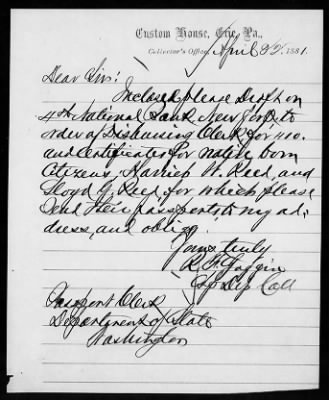 Custom House, Erie, Pa.,
Collector's Office, April 22, 1881.
Dear Sir:
Inclosed please Draft on
4th National Bank New York to
order of Disbursing Clerk for $10.
and Certificates for native born
Citizens, Harriet W. Reed, and
Lloyd G. Reed, for which please
send their passports to my ad-
dress, and oblige.
Yours truly
Dep Coll
Passport Clerk
Department of State
Washington